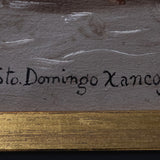 Sto. Domingo Xanco